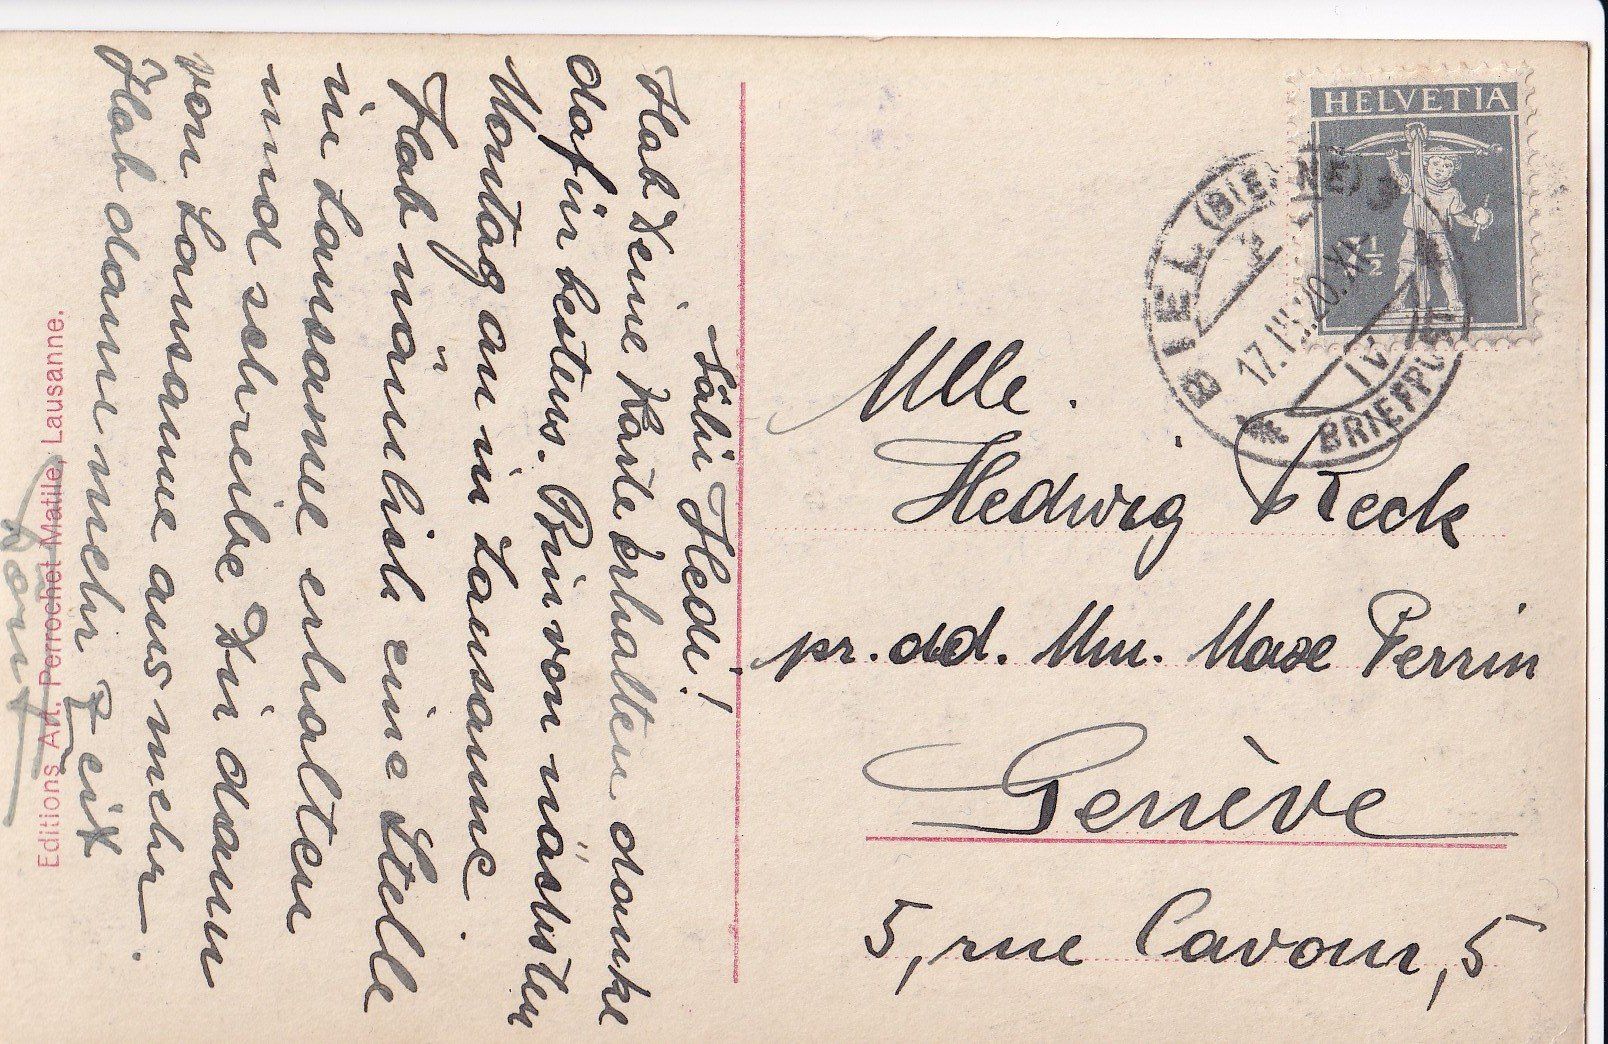 Säli Hedi!
Hab Deine Karte erhalten danke
dafür bestens. Bin von nächsten
Montag an in Lausanne.
Hab nämlich eine Stelle
in Lausanne erhalten
und schreibe Dir dann
von Lausanne aus mehr.
Hab dann mehr Zeit
Editions Art. Perrochet-Matile, Lausanne.
HELVETIA
7 1/2
BIEL (BIENNE)
17.III.20.
IV
BRIEFPOST
Mlle.
Hedwig Reck
pr. ad. Mm. Maxe Perrin
Genève
5, rue Cavour, 5